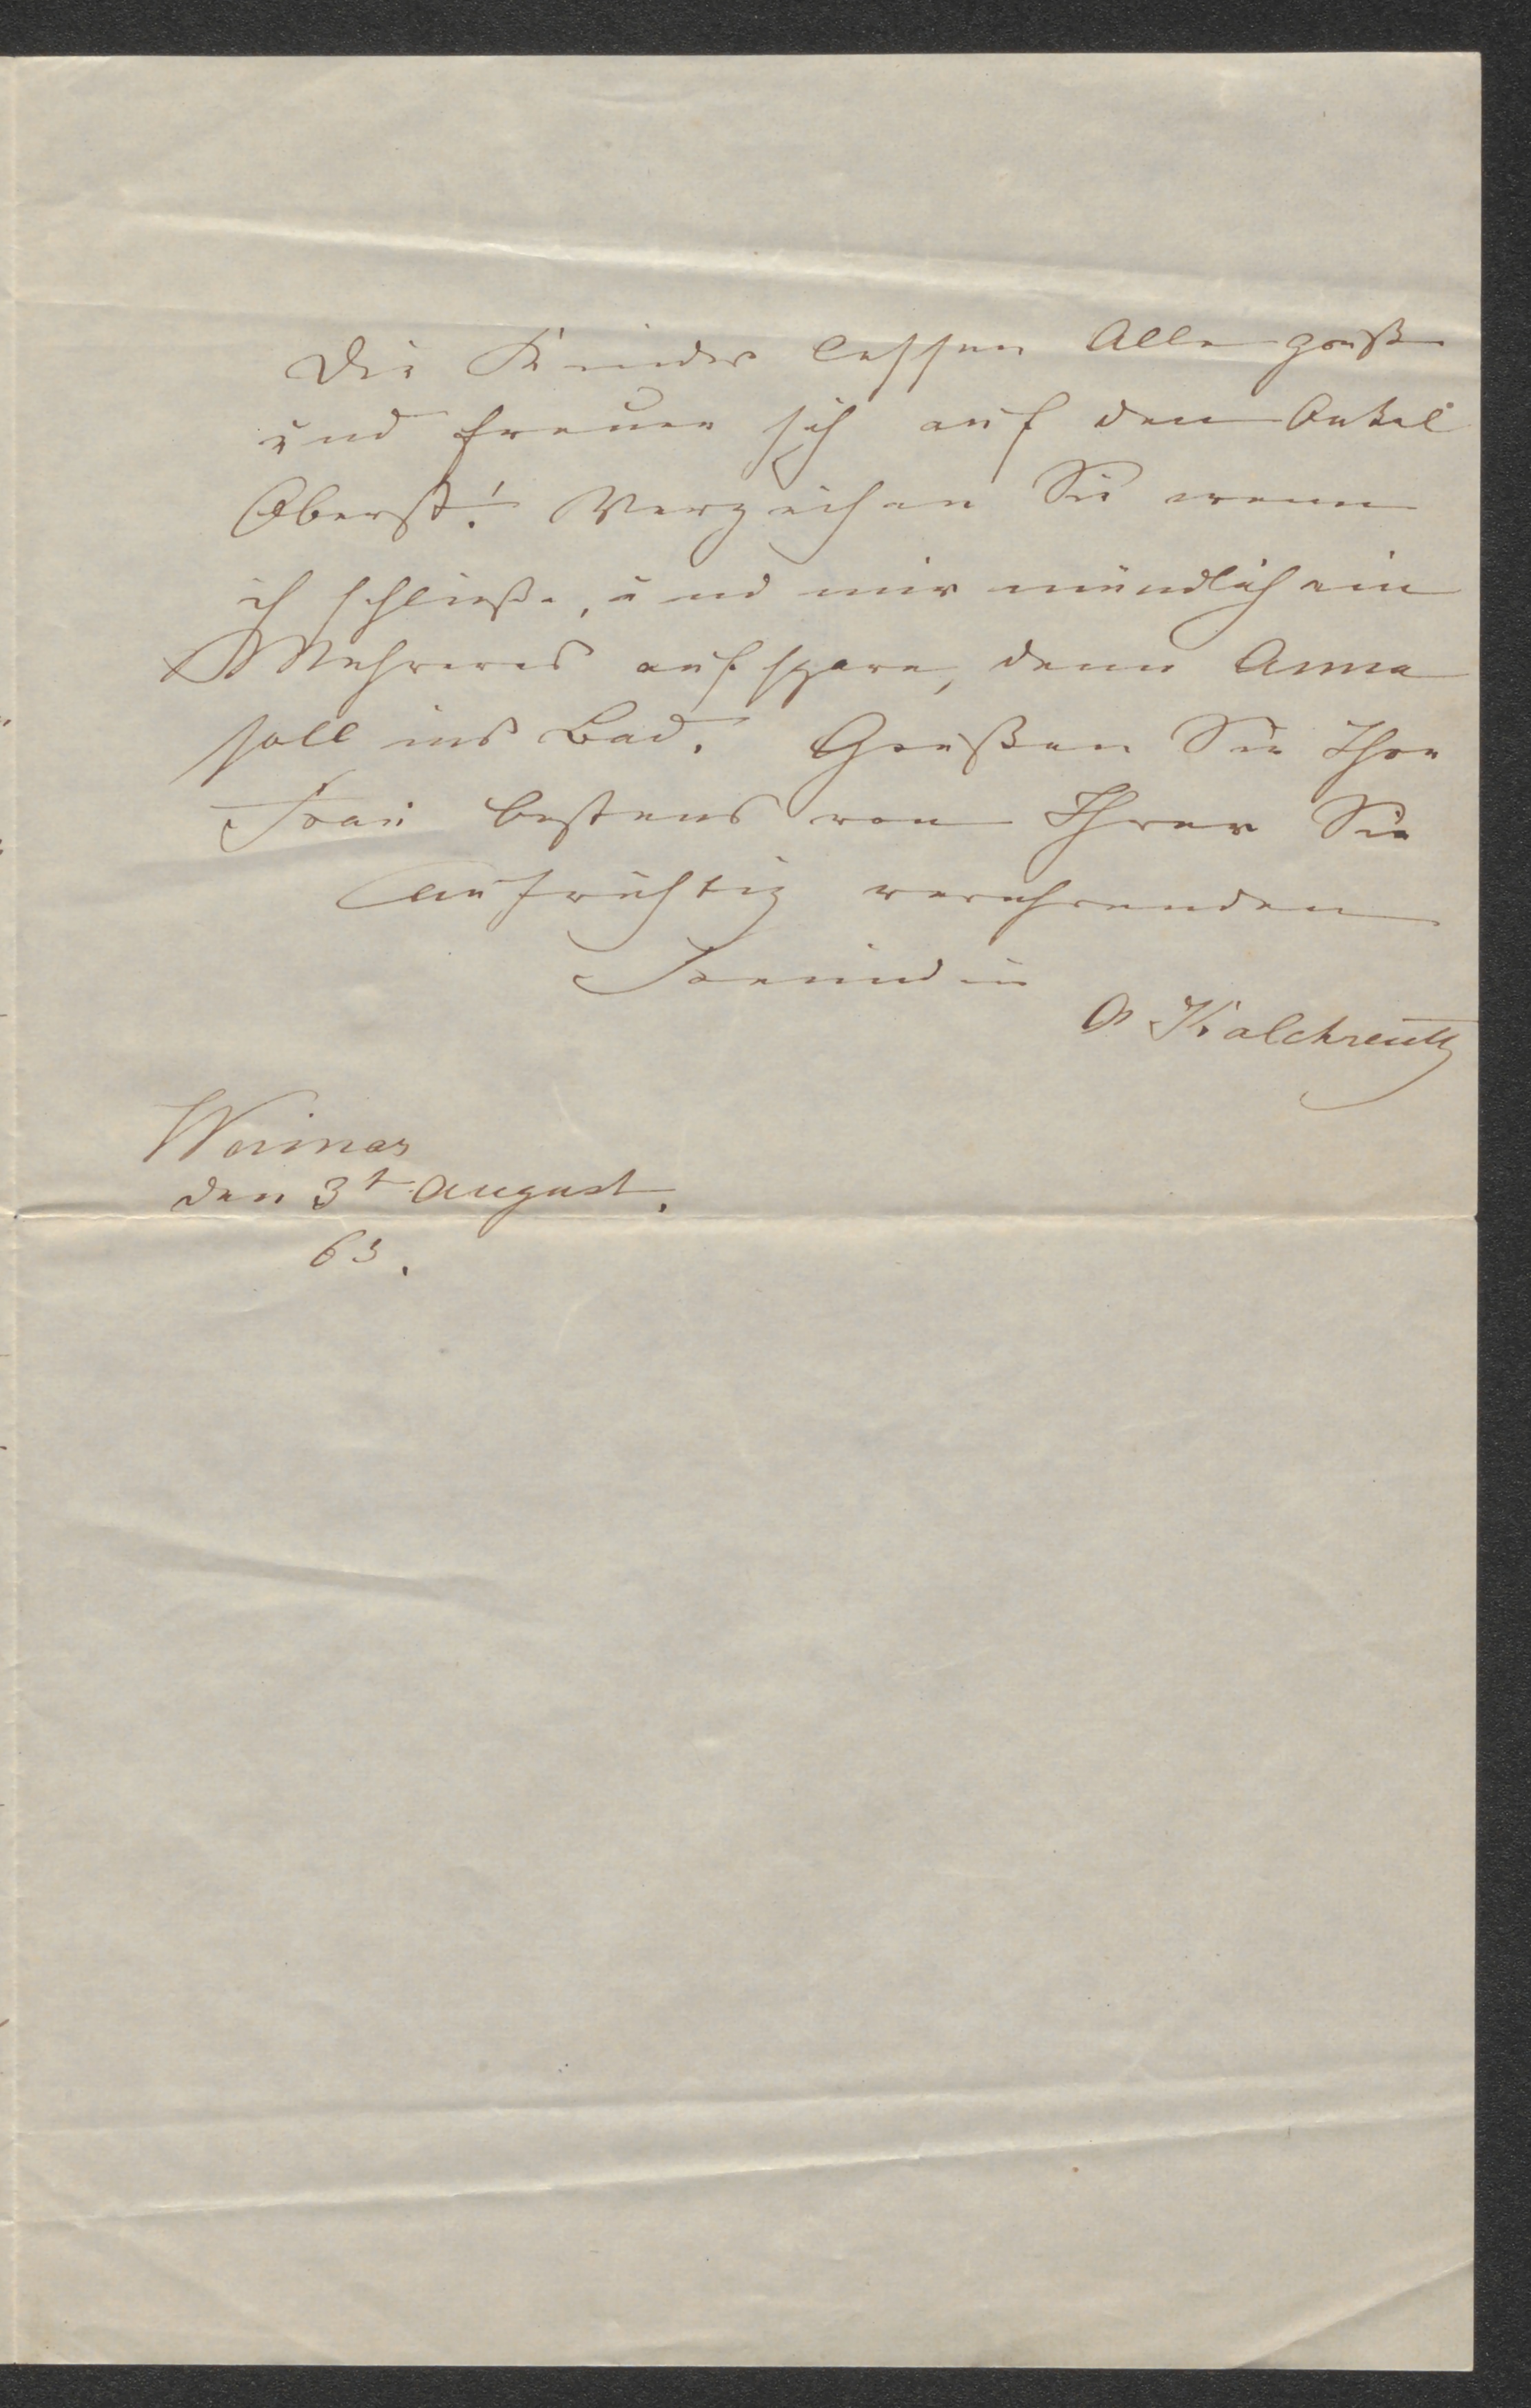 Die Kinder lassen Alle grüßen
und freuen sich auf den Onkel
Oberst! Verzeihen Sie wenn
ich schließe, und mir mündlich ein
Mehreres aufspare, denn Anna
soll ins Bad. Grüßen Sie Ihre
Frau bestens von Ihrer Sie
aufrichtig verehrenden
Freundin
Kalckreuth
Weimar
den 3t August.
63.